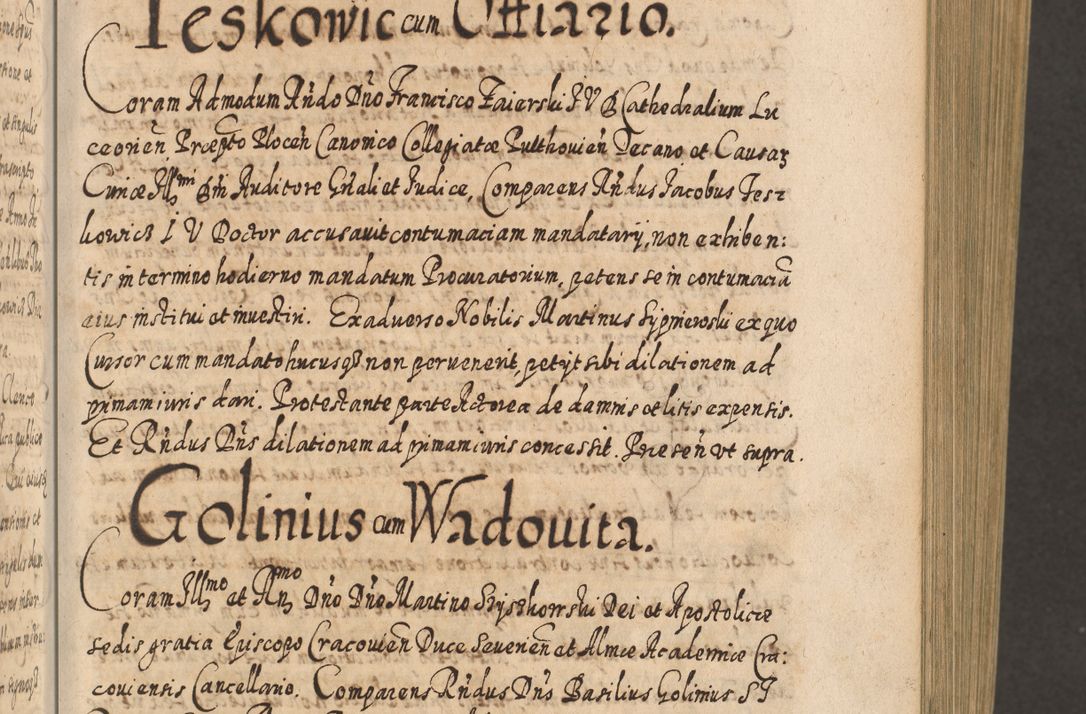 Teskowic cum Offiario.
Coram Admodum Rńdo Dńo Francisco Zaierski I V D Cathedralium Lu
ceorień, Præpto Ploceń Canonico Collegiatæ Pulthouień Decano et Causaȝ
Curiæ Illmi Auditore Gńali et Iudice, Comparens Rńdus Iacobus Tesz
kowicz I V Doctor accusauit contumaciam mandatarij, non exhiben:
tis in termino hodierno mandatum Procuratorium, petens se in contumaciā
eius institui et inuestiri. Ex aduerso Nobilis Martinus Sypnieroski ex quo
Cursor cum mandato hucusqȝ non peruenerit, petijt sibi dilationem ad
primam iuris dari. Protestante parte Actorea de damnis et litis expensis.
Et Rńdus Dńs dilationem ad primam iuris concessit. Preseń vt supra.
Golinius cum Wadouita.
Coram Illmo et Rńmo Dńo Dńo Martino Szyszkowski Dei et Apostolicæ
sedis gratia Episcopo Cracouień Duce Seuerień et Almæ Academiæ Cra:
couiensis Cancellario. Comparens Rńdus Dńs Basilius Golinius S T